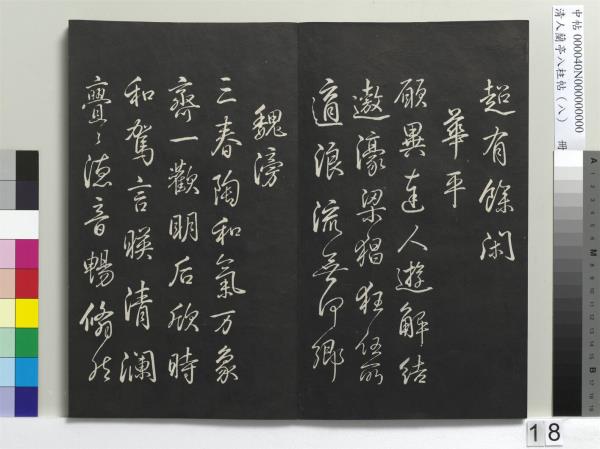 中帖 000040N000000000 冊
清人蘭亭八柱帖（八）
超有餘閑
華平
願與達人遊解結
遨濠梁猖狂任所
適浪流無何鄉
魏滂
三春陶和氣万象
齊一歡明后欣時
和駕言暎清瀾
亹〻德音暢翛然
18